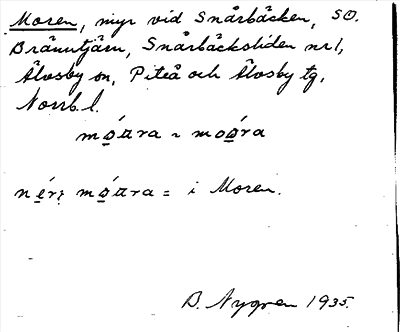 Moren, myr vid Snårbäcken, SO.
Brännträsk, Snårbäcksliden nr 1,
Älvsby sn, Piteå och Älvsby tg,
Norrb. l.
mó̲ɑra ~ moó̲ra
né̲r i mó̲ɑra = i Moren.
B. Nygren 1935.